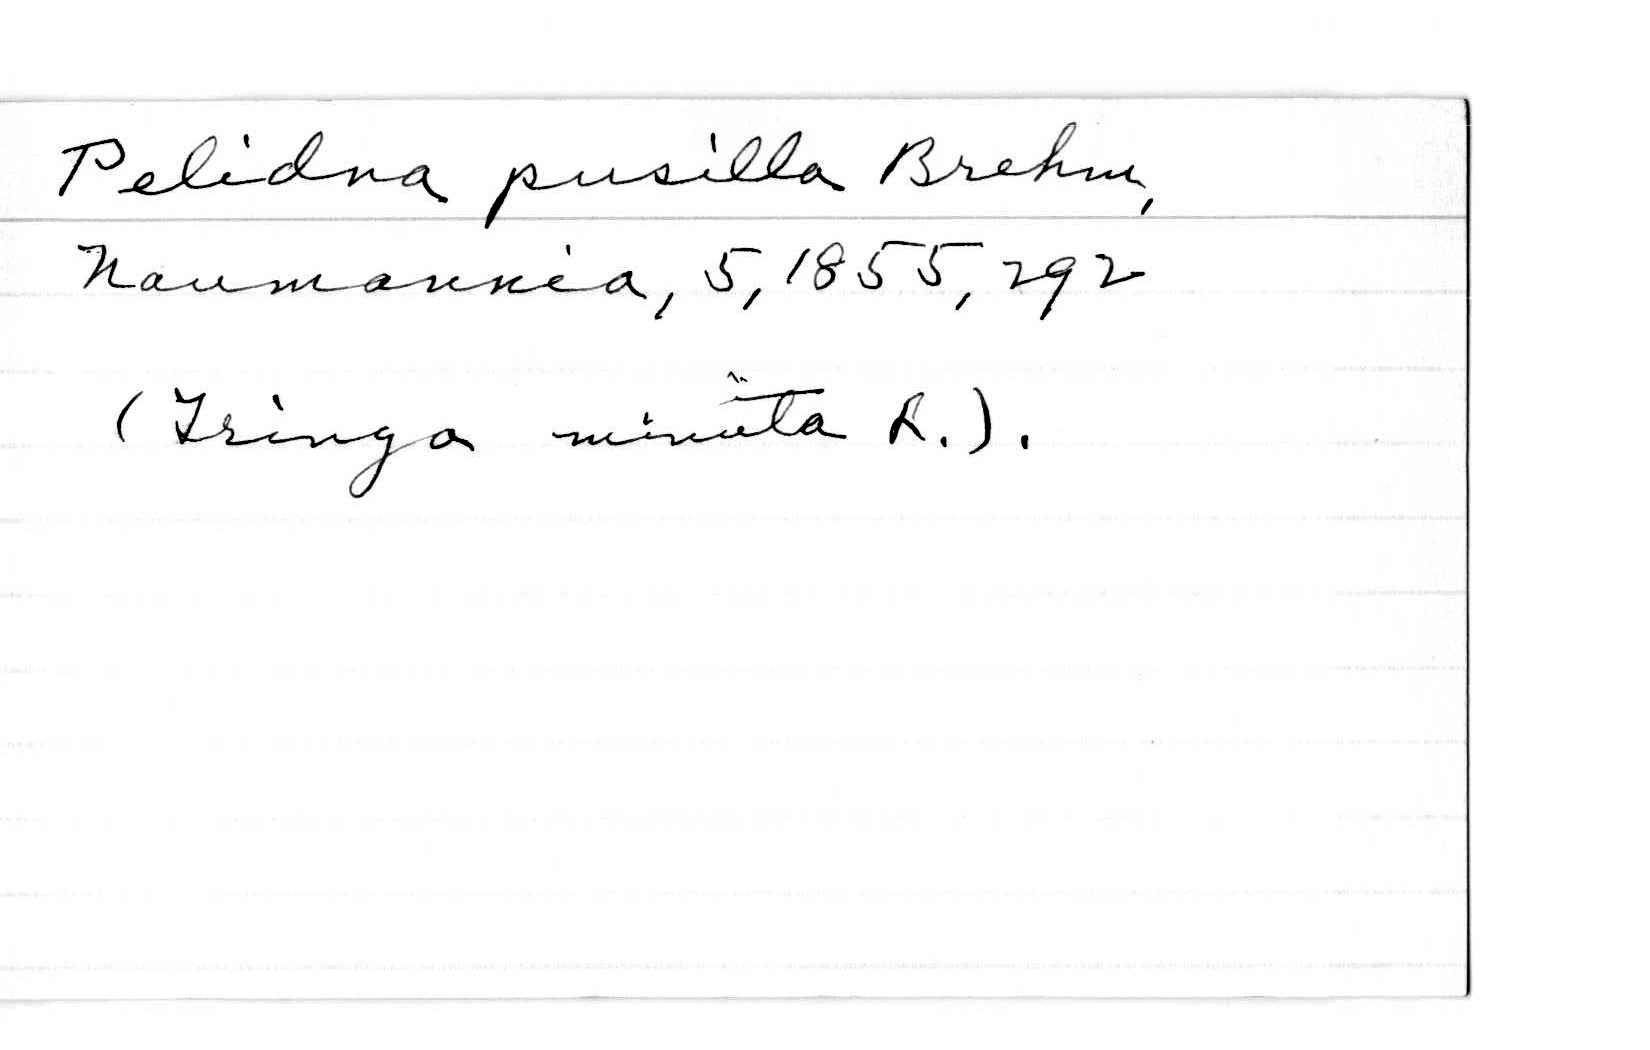 Pelidna pusilla Brehm,
Naumannia, 5, 1855, 292
(Tringa minuta L.).